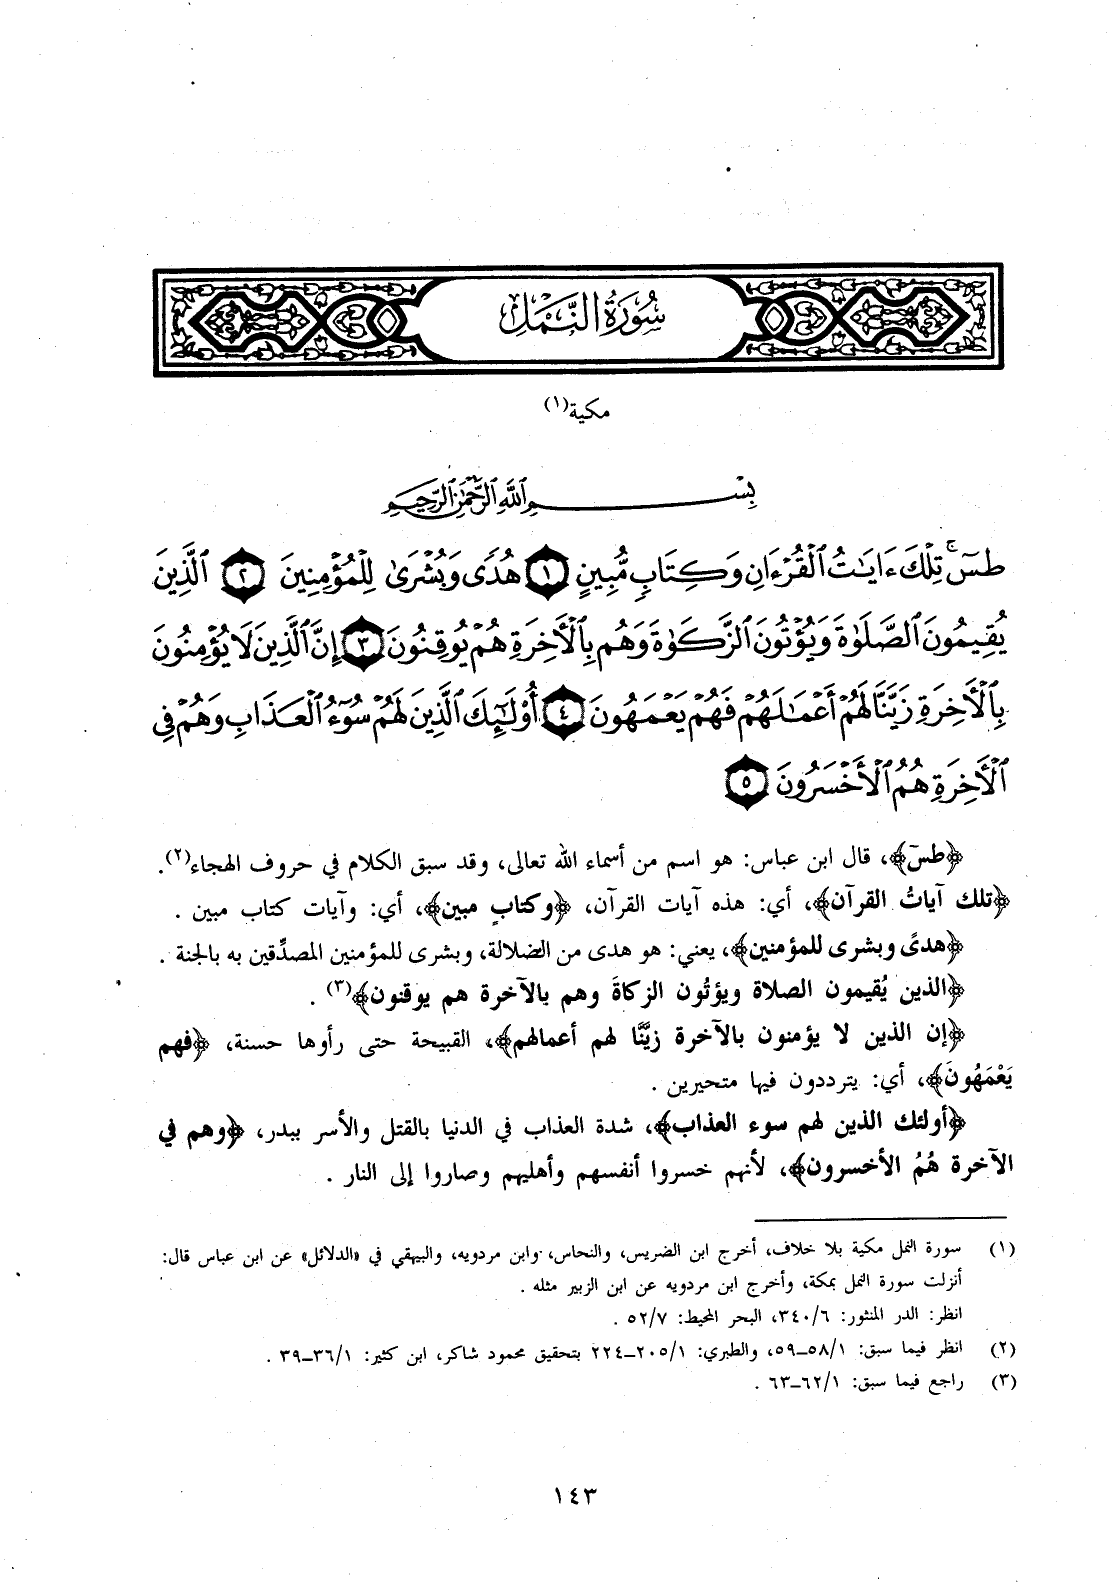 سُورَةُ النَّمْلِ
مكية(١)
بِسْمِ اللَّهِ الرَّحْمَٰنِ الرَّحِيمِ
طسٓ ۚ تِلْكَ ءَايَٰتُ ٱلْقُرْءَانِ وَكِتَابٍ مُّبِينٍ ١ هُدًى وَبُشْرَىٰ لِلْمُؤْمِنِينَ ٢ ٱلَّذِينَ
يُقِيمُونَ ٱلصَّلَوٰةَ وَيُؤْتُونَ ٱلزَّكَوٰةَ وَهُم بِٱلْأَخِرَةِ هُمْ يُوقِنُونَ ٣ إِنَّ ٱلَّذِينَ لَا يُؤْمِنُونَ
بِٱلْأَخِرَةِ زَيَّنَّا لَهُمْ أَعْمَٰلَهُمْ فَهُمْ يَعْمَهُونَ ٤ أُوْلَٰٓئِكَ ٱلَّذِينَ لَهُمْ سُوٓءُ ٱلْعَذَابِ وَهُمْ فِى
ٱلْأَخِرَةِ هُمُ ٱلْأَخْسَرُونَ ٥
﴿طسٓ﴾، قال ابن عباس: هو اسم من أسماء الله تعالى، وقد سبق الكلام في حروف الهجاء(٢).
﴿تلك آياتُ القرآن﴾، أي: هذه آيات القرآن، ﴿وكتابٍ مبين﴾، أي: وآيات كتاب مبين .
﴿هدىً وبشرى للمؤمنين﴾، يعني: هو هدى من الضلالة، وبشرى للمؤمنين المصدِّقين به بالجنة .
﴿الذين يُقيمون الصلاة ويؤتُون الزكاةَ وهم بالآخرة هم يوقنون﴾(٣) .
﴿إن الذين لا يؤمنون بالآخرة زيَّنَّا لهم أعمالهم﴾، القبيحة حتى رأوها حسنة، ﴿فهم
يَعْمَهُونَ﴾، أي: يترددون فيها متحيرين .
﴿أولئك الذين لهم سوء العذاب﴾، شدة العذاب في الدنيا بالقتل والأسر ببدر، ﴿وهم في
الآخرة هُمُ الأخسرون﴾، لأنهم خسروا أنفسهم وأهليهم وصاروا إلى النار .
(١) سورة النمل مكية بلا خلاف، أخرج ابن الضريس، والنحاس، وابن مردويه، والبيهقي في «الدلائل» عن ابن عباس قال:
أنزلت سورة النمل بمكة، وأخرج ابن مردويه عن ابن الزبير مثله .
انظر: الدر المنثور: ٣٤٠/٦، البحر المحيط: ٥٢/٧ .
(٢) انظر فيما سبق: ٥٨/١_٥٩، والطبري: ٢٠٥/١_٢٢٤ بتحقيق محمود شاكر، ابن كثير: ٣٦/١_٣٩ .
(٣) راجع فيما سبق: ٦٢/١_٦٣ .
١٤٣